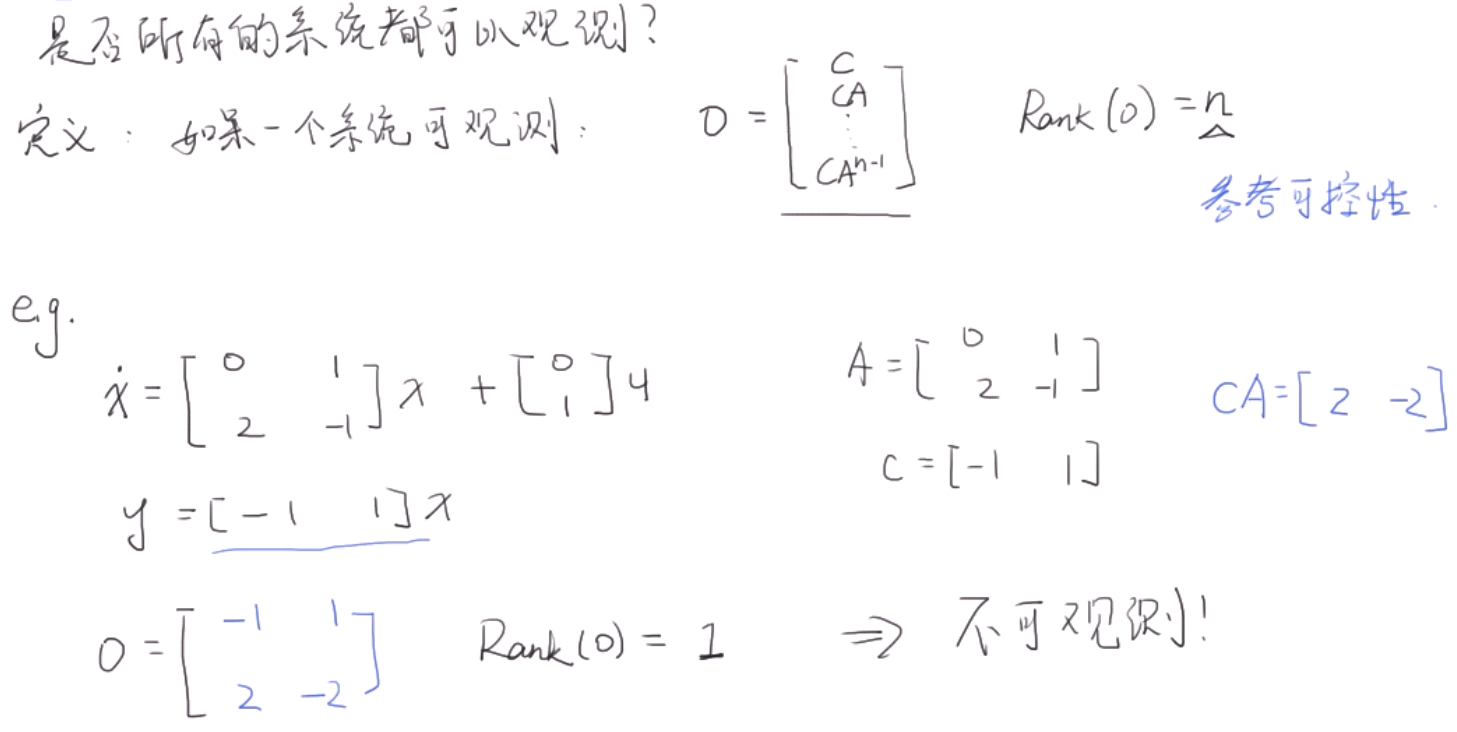 是否所有的系统都可以观测?
定义: 如果一个系统可观测: O = [ C CA ⋮ CA^{n-1} ] Rank(O) = n
参考可控性.
e.g.
ẋ = [ 0 1 2 -1 ] x + [ 0 1 ] u A = [ 0 1 2 -1 ] CA = [ 2 -2 ]
C = [ -1 1 ]
y = [ -1 1 ] x
O = [ -1 1 2 -2 ] Rank(O) = 1 ⇒ 不可观测!